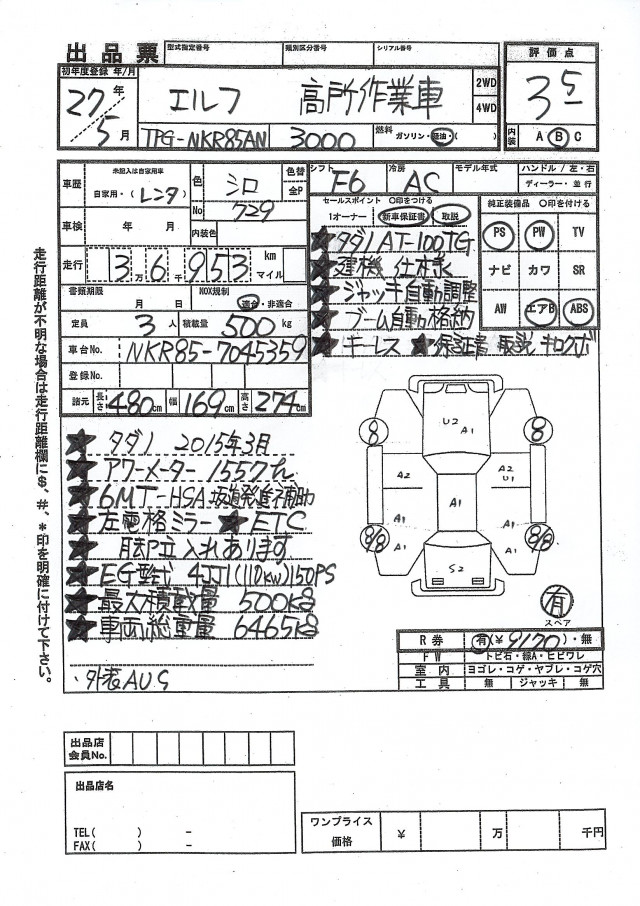 出品票 型式指定番号 類別区分番号 シリアル番号 評価点
初年度登録 年/月
27年 エルフ 高所作業車 2WD 3 5
5月 4WD
TPG-NKR85AN 3000 燃料 ガソリン・軽油・( ) 内装 A B C
車歴 未記入は自家用車 色 シロ 色替 シフト F6 冷房 AC モデル年式 ハンドル / 左・右
自家用・(レンタ) 全P ディーラー・並行
No 729 セールスポイント ○印をつける 純正装備品 ○印を付ける
車検 年 月 内装色 1オーナー 新車保証書 取説 PS PW TV
走行 3万6千953 km マイル ★タダノAT-100TG
★建機仕様 ナビ カワ SR
書類期限 月 日 NOX規制 適合・非適合 ★ジャッキ自動調整
定員 3人 積載量 500kg ★ブーム自動格納 AW エアB ABS
車台No. NKR85-7045359 ★キーレス ★保証書 取説 キロクボ
登録No.
諸元 長さ 480cm 幅 169cm 高さ 274cm
★タダノ 2015年3月
★アワーメーター 1557h
★6MT-HSA坂道発進補助
★左電格ミラー ★ETC
★胴立入れあります
★EG型式 4JJ1(110kw)150PS
★最大積載量 500kg
★車両総重量 6465kg
・外装AUG
U2 A1
8 8
A2 A2 U1
A1
A1 A1
8/8 A1 A1 8/8
S2
有
スペア
R券 有(¥9170)・無
FW トビ石・線A・ヒビワレ
室内 ヨゴレ・コゲ・ヤブレ・コゲ穴
工具 無 ジャッキ 無
走行距離が不明な場合は走行距離欄に$、#、*印を明確に付けて下さい。
出品店会員No.
出品店名
TEL( ) -
FAX( ) -
ワンプライス価格 ¥ 万 千円